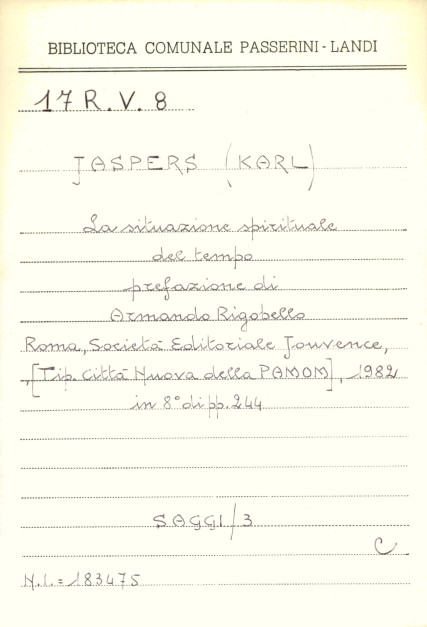 BIBLIOTECA COMUNALE PASSERINI-LANDI
17 R. V. 8
JASPERS (KARL)
La situazione spirituale
del tempo
prefazione di
Armando Rigobello
Roma, Società Editoriale Jouvence,
, [Tip. Città Nuova della PAMOM], 1982
in 8° di pp. 244
SAGGI/3
C
N.I. = 183475